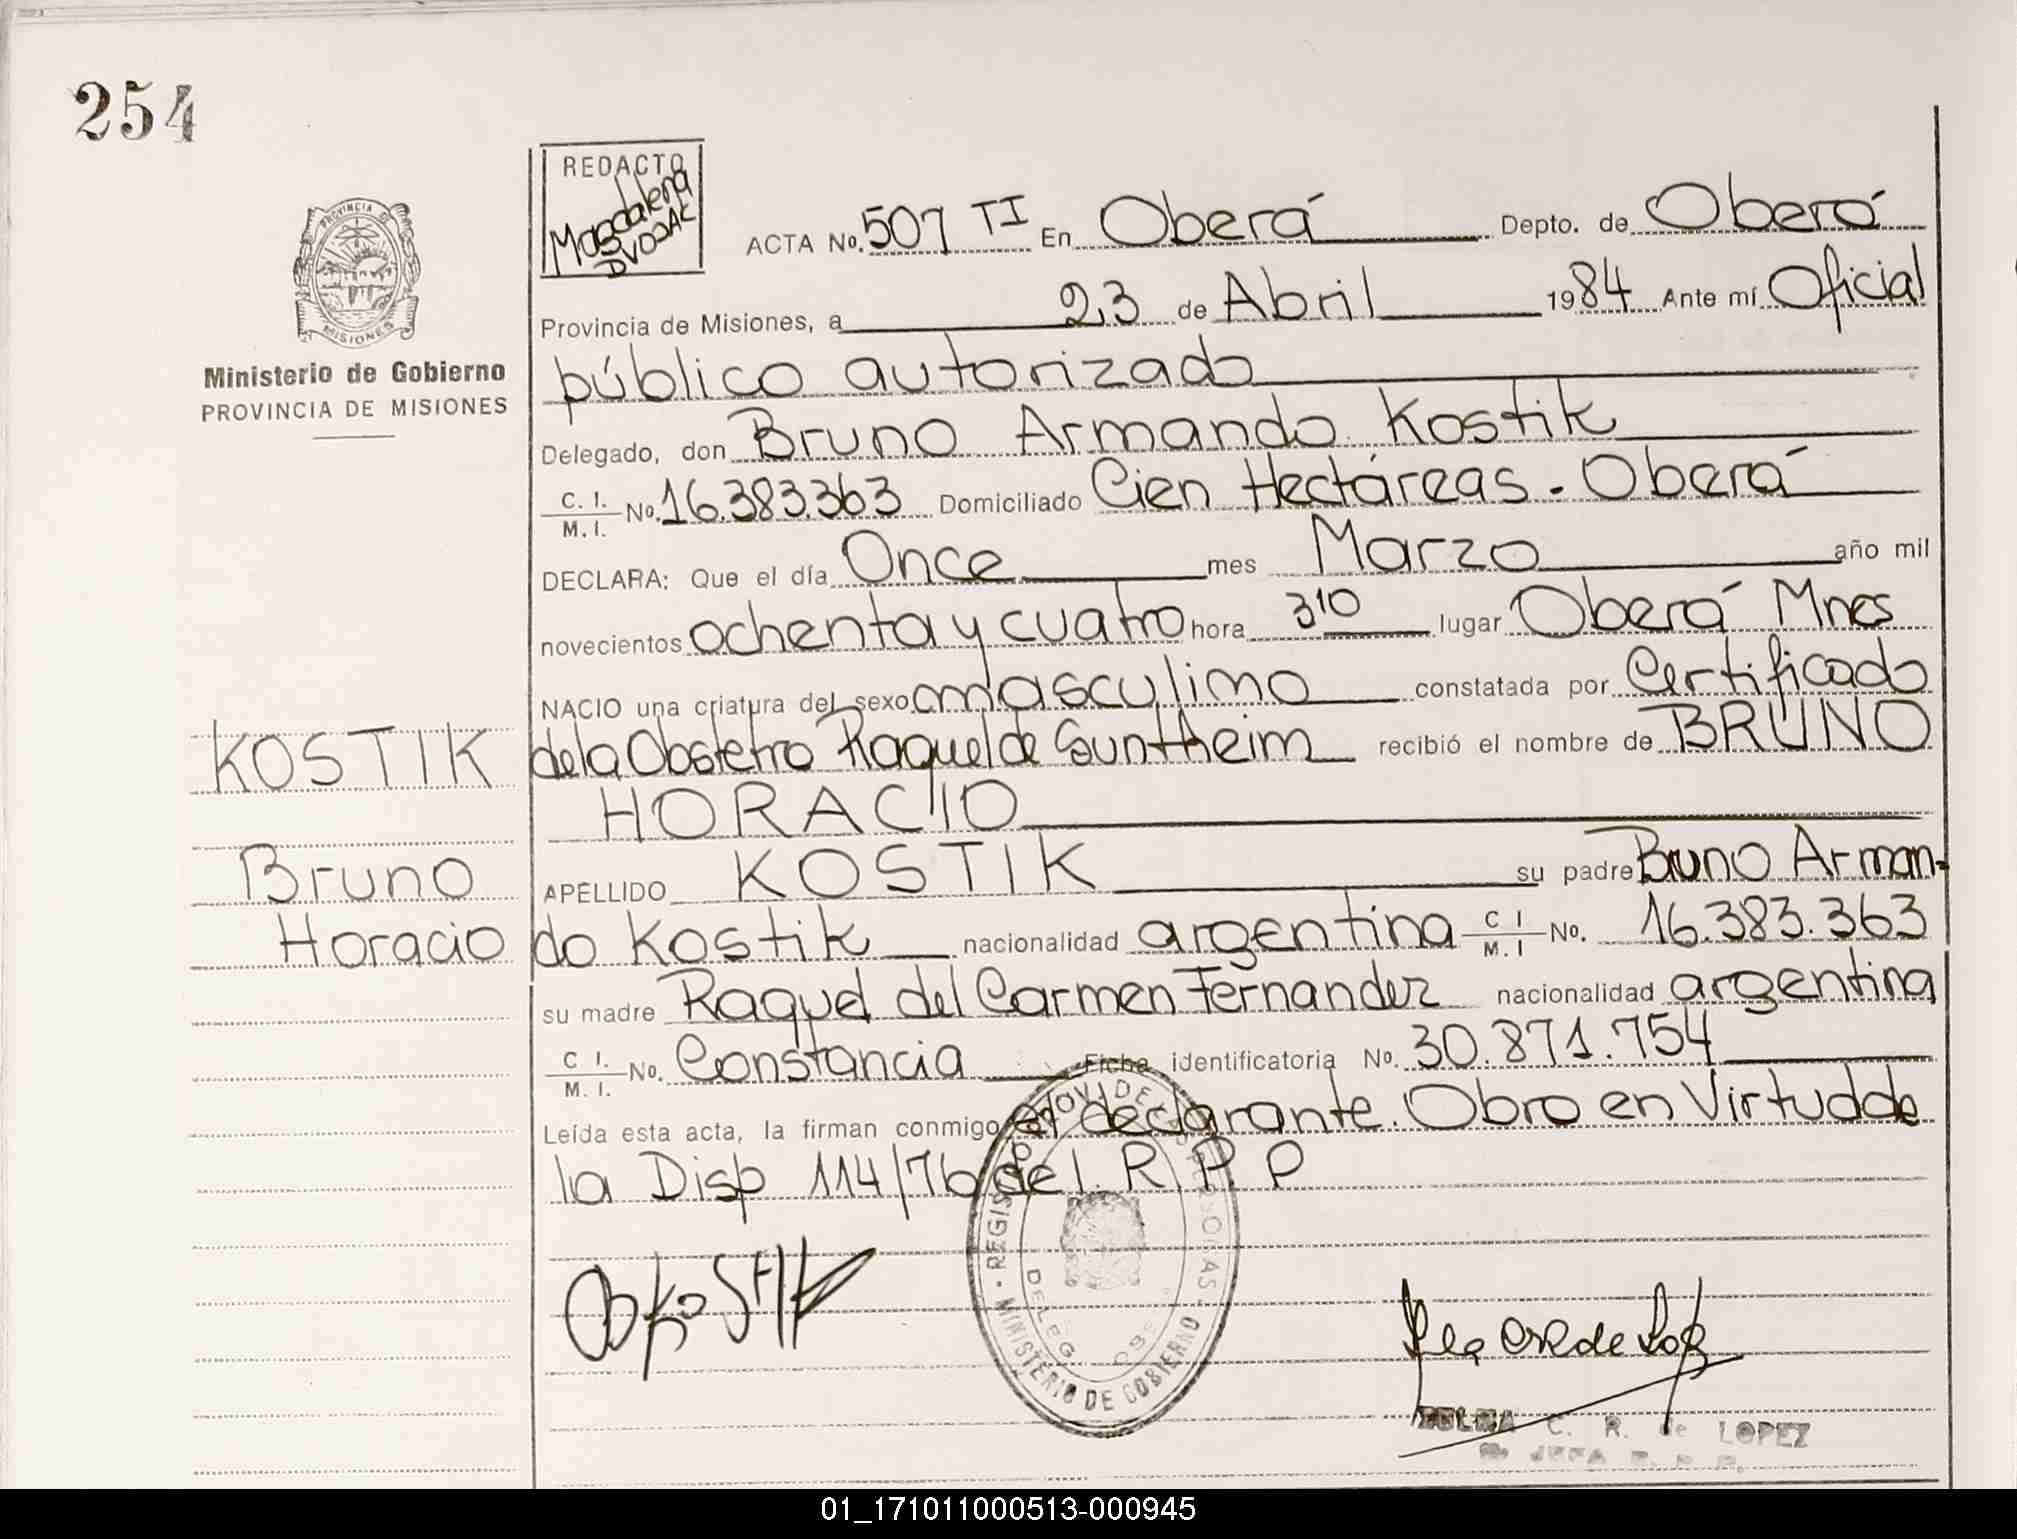 254
REDACTO
Magdalena
DVOJAK
PROVINCIA DE
MISIONES
Ministerio de Gobierno
PROVINCIA DE MISIONES
ACTA No. 507 TI En Oberá Depto. de Oberá
Provincia de Misiones, a 23 de Abril 1984 Ante mí Oficial
público autorizado
Delegado, don Bruno Armando Kostik
C. I. M. I. No. 16.383.363 Domiciliado Cien Hectáreas - Oberá
DECLARA: Que el día Once mes Marzo año mil
novecientos ochenta y cuatro hora 3 10 lugar Oberá Mnes
NACIO una criatura del sexo masculino constatada por Certificado
de la Obstetra Raquel de Suntheim recibió el nombre de BRUNO
HORACIO
APELLIDO KOSTIK su padre Bruno Arman-
do Kostik nacionalidad argentina C I M. I No. 16.383.363
su madre Raquel del Carmen Fernandez nacionalidad argentina
C I. M. I. No. Constancia Ficha identificatoria No. 30.871.754
Leída esta acta, la firman conmigo el declarante. Obro en Virtud de
la Disp 114/76 del R P P
KOSTIK
Bruno
Horacio
Kostik
MINISTERIO DE GOBIERNO
C. R. de LOPEZ
JEFA R. P. P.
01_171011000513-000945